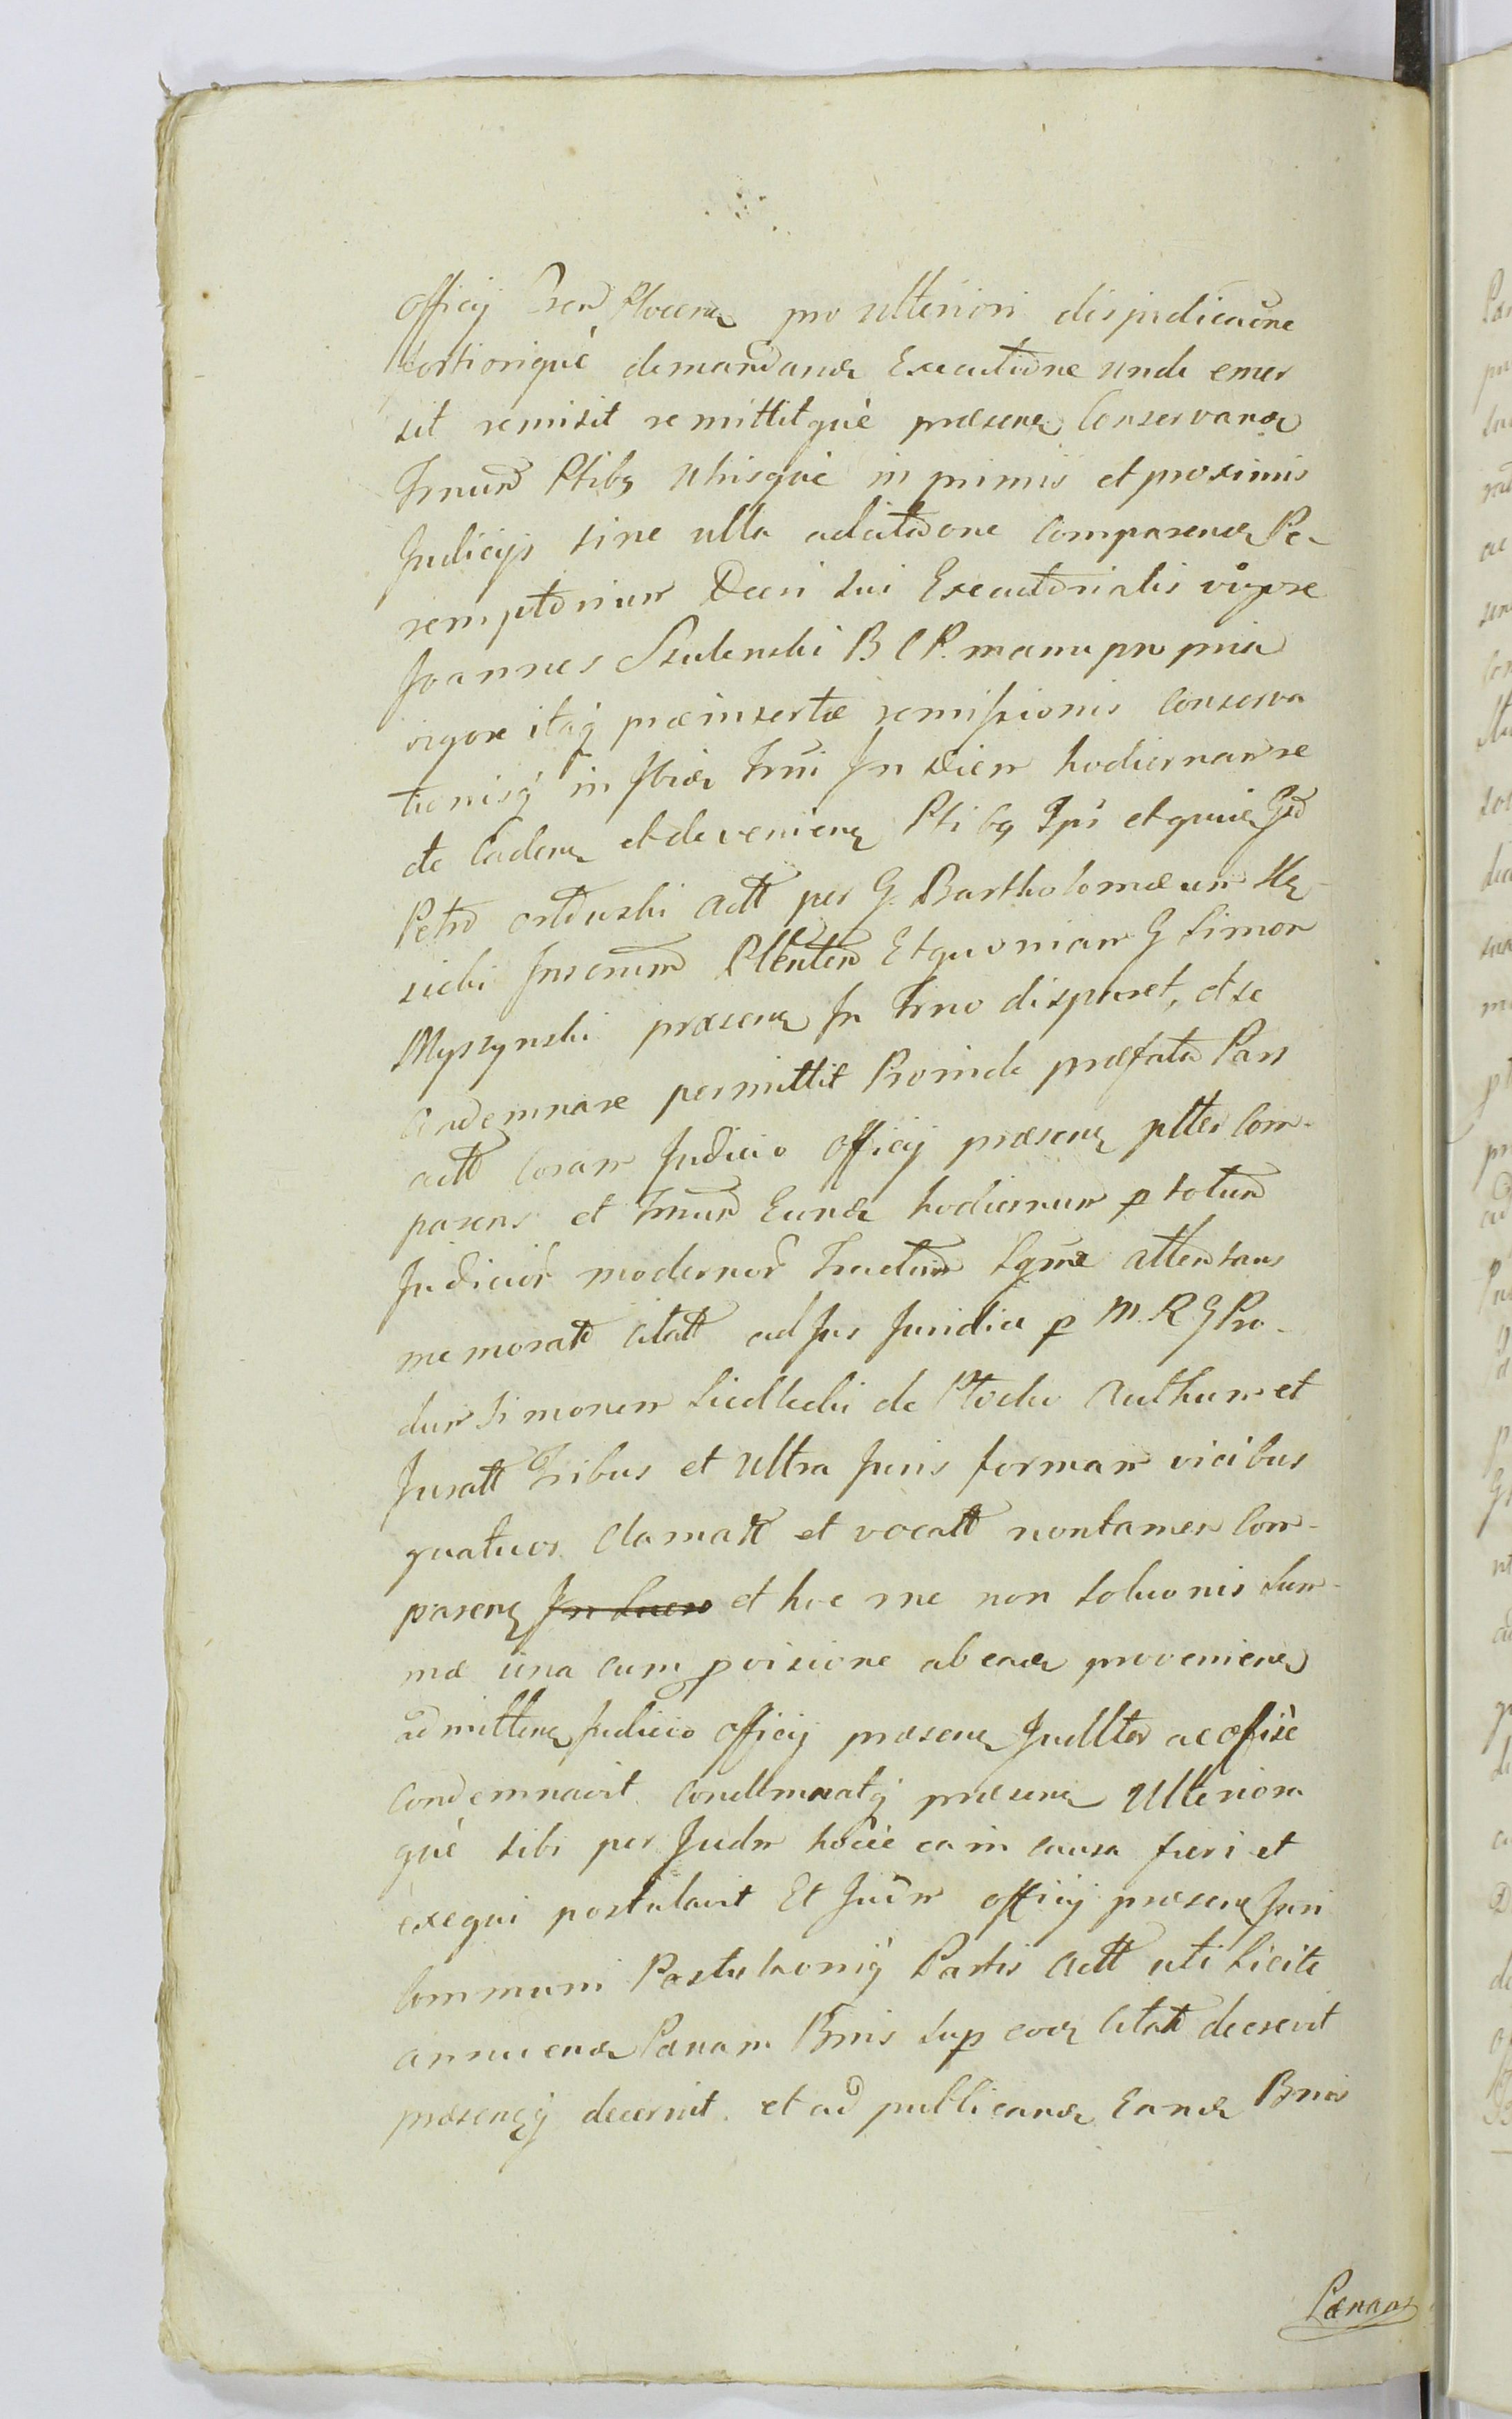 officij Plocens pro ulteriori disjudicaone
fortioriquè demandanda Executione unde emer
sit remisit remittitquè praesens Conservando
Trnum Ptibg utrisquè in primis et proximis
Judicijs sine ulla adcitatione comparendi Pe-
remptorium Decri sui Executorialis vigore
Joannes Szulenski B C P. manu propria
vigore itaq praeinsertae remissionis conserva
tionisq Trni In diem hodiernam re
cte Caden et devenien Ptibg Ipsi et quia
Petro actt per G. Bartholomaeum
sicki Plenten Et quoniam G Simon
Myszynski praesen In Trno disparet, et se
condemnare permittit Proinde praefata Pars
actt coram Judicio officij praesen pltter com-
parens et Trnum Eund hodiernum p totum
Judicior modernor Tractum attentans
memorat citatt ad Jus Juridice p M. R. G Pro-
dum Simonem Siedlecki de Plocko Authum et
Juratt Tribus et ultra Juris formam vicibus
quatuor clamatt et vocatt non tamen com-
paren In Lucro et hoc rne non soluonis sum-
mae una cum provisione ab eade provenien
admitten Judicio officij praesen Judlter ac
condemnavit condemnatq praesens ulteriora
què sibi per Judm hocce ea in causa fieri et
exequi postulavit Et Judm officij praesens Juri
communi Postulaoniq Partis actt uti licite
annuend Paenam Bnis sup eod citatt decrevit
praesensq decernit. et ad publicand Eand Bnis
Paenam